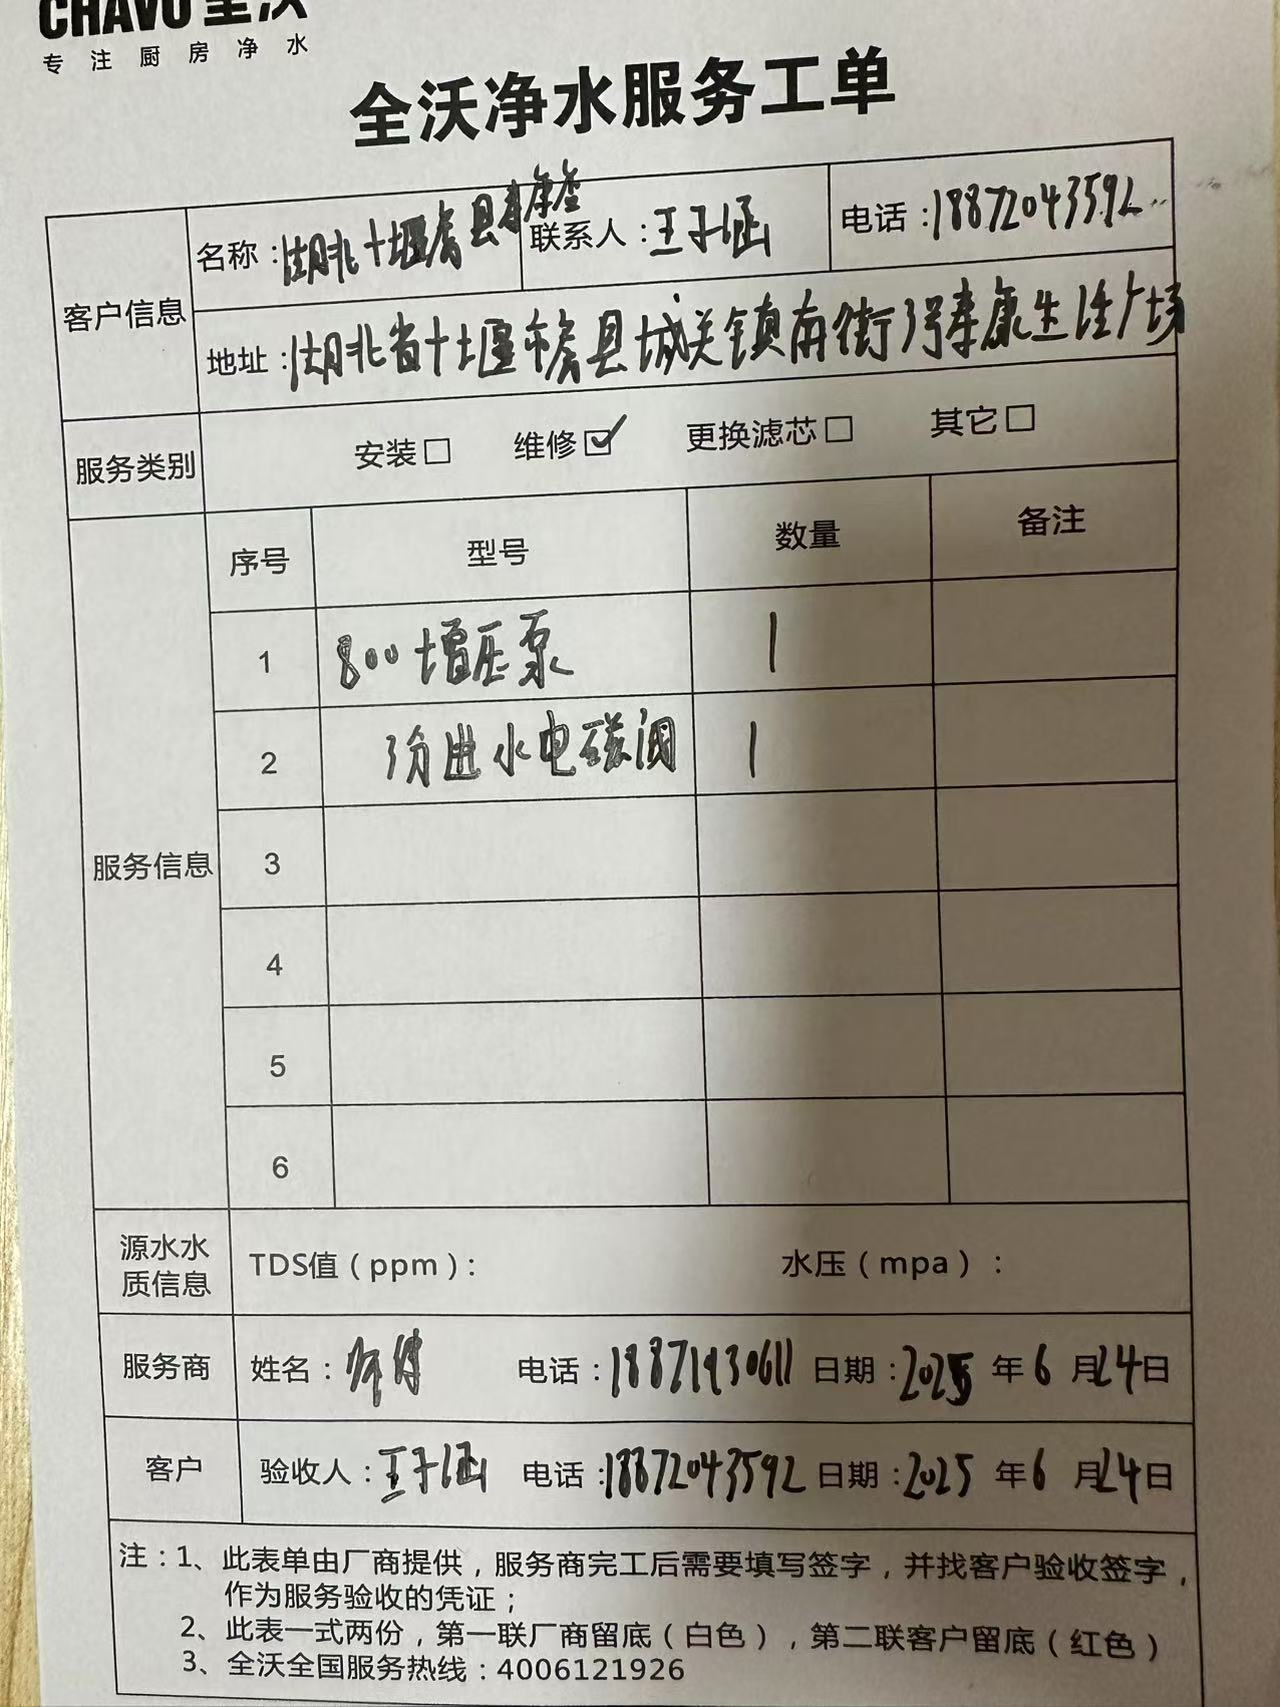 CHAVO 全沃
专注厨房净水
全沃净水服务工单
客户信息
名称：湖北十堰房县寿康店
联系人：王子涵
电话：18872043592
地址：湖北省十堰市房县城关镇南街1号寿康生活广场
服务类别
安装□ 维修☑ 更换滤芯□ 其它□
服务信息
序号 型号 数量 备注
1 800增压泵 1
2 3分进水电磁阀 1
3
4
5
6
源水水质信息
TDS值（ppm）： 水压（mpa）：
服务商 姓名： 电话：18871930611 日期：2025 年 6 月 24 日
客户 验收人：王子涵 电话：18872043592 日期：2025 年 6 月 24 日
注：1、此表单由厂商提供，服务商完工后需要填写签字，并找客户验收签字，
作为服务验收的凭证；
2、此表一式两份，第一联厂商留底（白色），第二联客户留底（红色）
3、全沃全国服务热线：4006121926